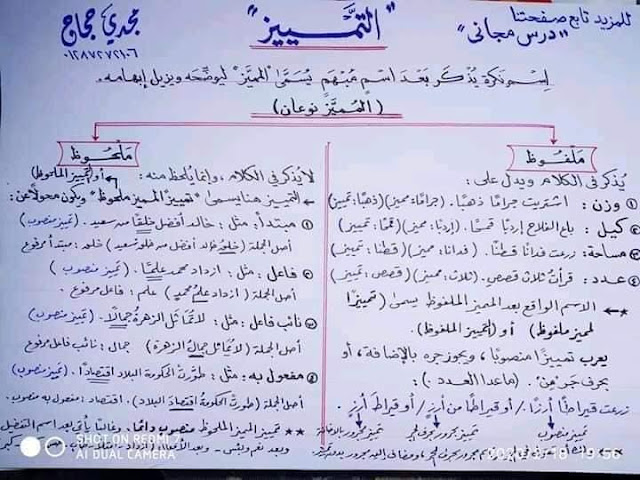 للمزيد تابع صفحتنا
"درس مجاني"
"التمييز"
مجدي حجاج
٠١٢٨٧٢٧٢١٠٦
اسم نكرة يُذكر بعد اسم مُبهم يُسمَّى "المميَّز" ليوضحه ويزيل إبهامه.
(المُميَّز نوعان)
مَلْفُوظ
يُذكر في الكلام ويدل على:
① وزن: اشتريت جرامًا ذهبًا. (جرامًا: مميز) (ذهبًا: تمييز)
② كيل: باع الفلاح إردبًا قمحًا. (إردبًا: مميز) (قمحًا: تمييز)
③ مساحة: زرعت فدانًا قطنًا. (فدانًا: مميز) (قطنًا: تمييز)
④ عدد: قرأتُ ثلاث قصصٍ. (ثلاث: مميز) (قصص: تمييز)
الاسم الواقع بعد المميز الملفوظ يسمى (تمييزًا
لمميز ملفوظ) أو (التمييز الملفوظ).
يعرب تمييزًا منصوبًا، ويجوز جره بالإضافة، أو
بحرف جر "من". (ماعدا العدد):
زرعت قيراطًا أرزًا. / أو قيراطًا من أرزٍ / أو قيراطَ أرزٍ.
تمييز منصوب
تمييز مجرور بحرف الجر
تمييز مجرور بالإضافة
مَلْحُوظ
لا يُذكر في الكلام، وإنما يُلحظ منه:
أو (التمييز الملحوظ)
التمييز هنا يسمى "تمييز المميز ملحوظ" ويكون محولًا عن:
① مبتدأ: مثل: خالد أفضل خلقًا من سعيد. (تمييز منصوب)
أصل الجملة (خلق خالد أفضل من خلق سعيد) خلق: مبتدأ مرفوع
② فاعل: مثل: ازداد محمد علمًا. (تمييز منصوب)
أصل الجملة (ازداد علم محمد) علم: فاعل مرفوع.
③ نائب فاعل: مثل: لا تُماثَل الزهرة جمالًا. (تمييز منصوب)
أصل الجملة (لا يُماثَل جمال الزهرة) جمال: نائب فاعل مرفوع
④ مفعول به: مثل: طوَّرت الحكومة البلاد اقتصادًا. (تمييز منصوب)
أصل الجملة (طورت الحكومة اقتصاد البلاد). اقتصاد: مفعول به منصوب.
★★ تمييز المميز الملحوظ منصوب دائمًا. وغالبًا يأتي بعد اسم التفضيل
وبعد نعم وبئس - وبعد الأفعال
SHOT ON REDMI 7
AI DUAL CAMERA
19:56